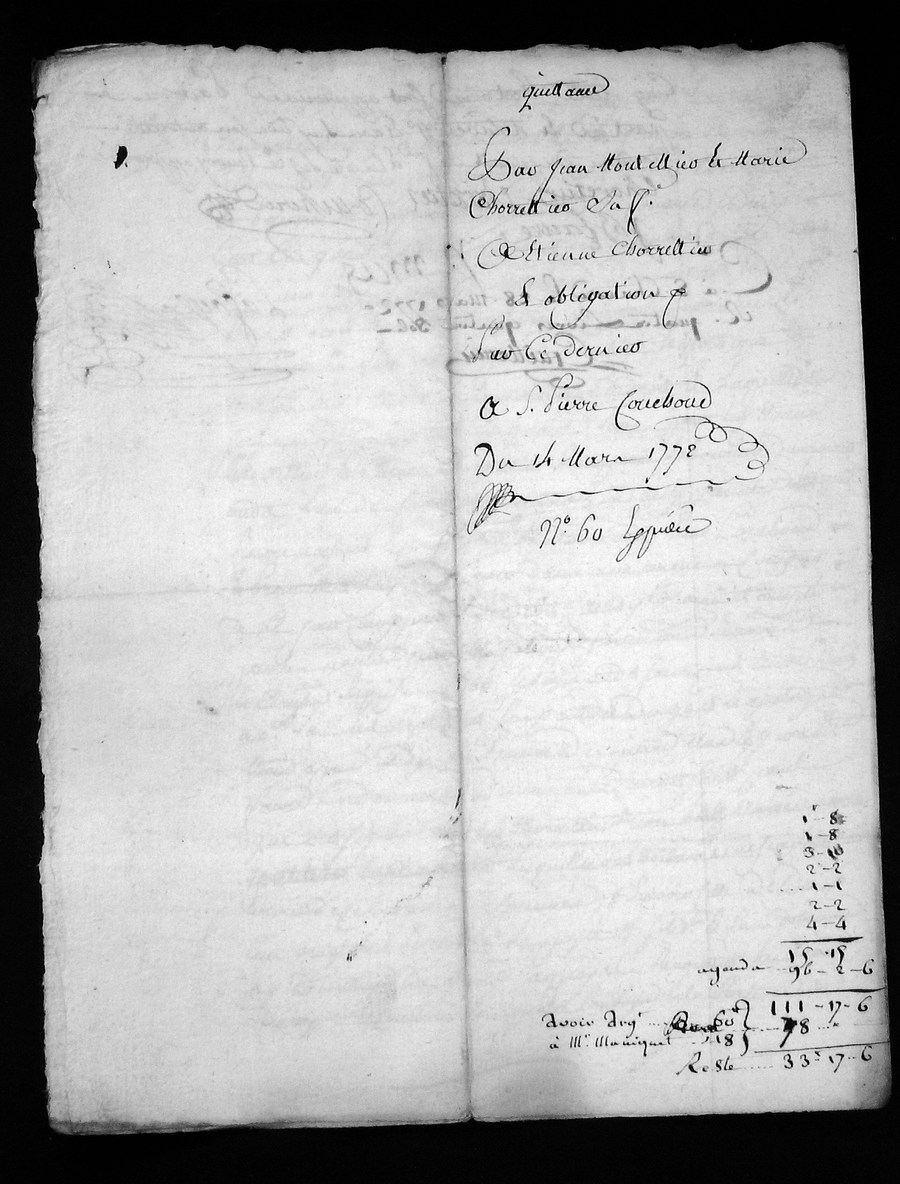 quittance
Par Jean Montellier et Marie
Chorrettier Sa f.e
A Etienne Chorrettier
Et obligation p
par Ce dernier
a S. Pierre Couchoud
Du 14 Mars 1772
N.o 60 Expédié
1-8
1-8
3-10
2-2
1-1
2-2
4-4
15-15
agenda 96-2-6
111-17-6
Avoir Arg.t 60
78
à M.r Maniquet 18
Reste 33-17-6